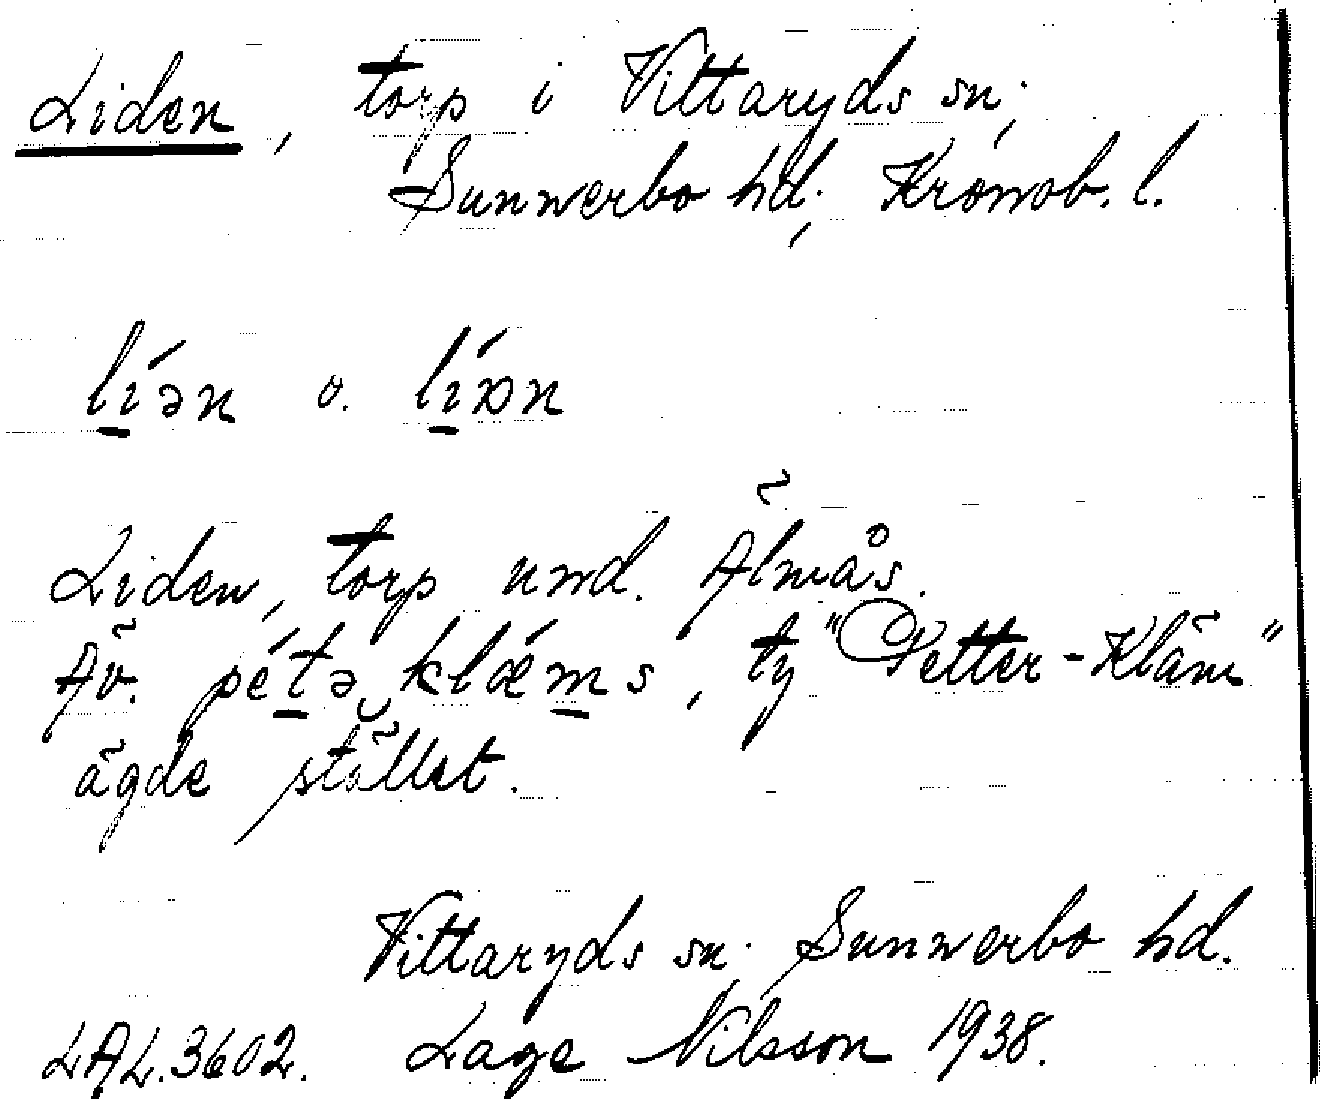 Liden, torp i Vittaryds sn;
Sunnerbo hd; Kronob. l.
lı̱́ən o. lı̱́ɒn
Liden, torp und. Älmås.
Äv. péṯə‿klǽm̱s, ty "Petter-Kläm"
ägde stället.
Vittaryds sn. Sunnerbo hd.
LAL.3602. Lage Nilsson 1938.